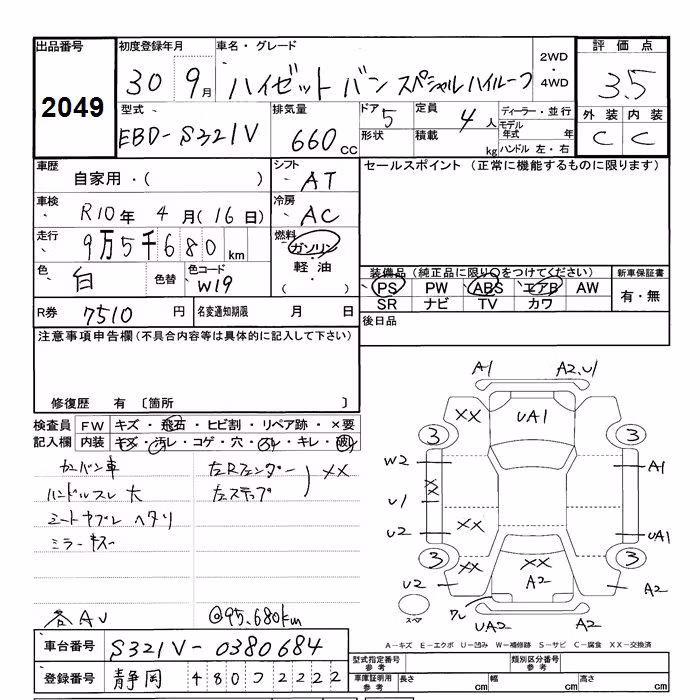 出品番号 初度登録年月 車名・グレード 2WD・4WD 評価点
2049 30 9月 ハイゼットバン スペシャルハイルーフ 3.5
型式 排気量 ドア 定員 ディーラー・並行 外装 内装
EBD-S321V 660cc 5 4人 モデル年式 年 C C
形状 積載 kg ハンドル 左・右
車歴 自家用・( ) シフト AT セールスポイント (正常に機能するものに限ります)
車検 R10年 4月(16日) 冷房 AC
走行 9万5千680km 燃料 ガソリン・軽油・( )
色 白 色替 色コード W19 装備品 (純正品に限り○をつけてください) 新車保証書
PS PW ABS エアB AW 有・無
SR ナビ TV カワ
R券 7510円 名変通知期限 月 日 後日品
注意事項申告欄(不具合内容等は具体的に記入して下さい)
修復歴 有 〔箇所 〕
検査員記入欄 FW キズ・飛石・ヒビ割・リペア跡・×要
内装 キズ・汚レ・コゲ・穴・スレ・キレ・破レ
カーバン車 左Rフェンダー
ハンドルスレ 大 左ステップ XX
シートヤブレ ヘタリ
ミラーキズ
各AU @95,680km
A1 A2,U1
XX UA1
3 3
W2 A1
XX
U1
XX
U2 UA1
3 3
XX XX
U2 A2 A2
スペア ワレ UA2 A2
A-キズ E-エクボ U-凹み W-補修跡 S-サビ C-腐食 XX-交換済
車台番号 S321V-0380684
型式指定番号 参考 類別区分番号 参考
登録番号 静岡 480 2222
車庫証明用 参考 長さ cm 幅 cm 高さ cm